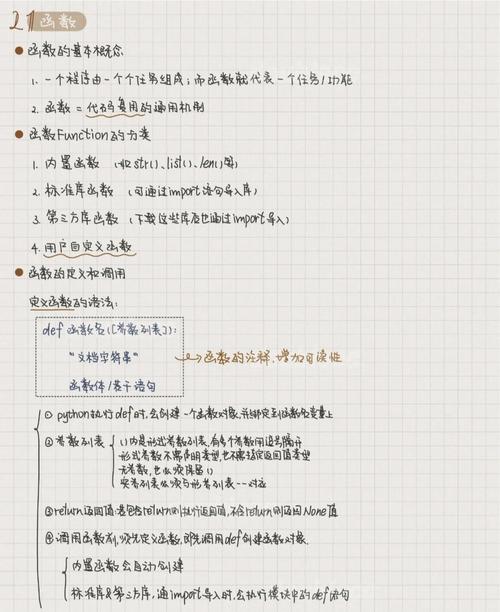 21 函数
函数的基本概念
1. 一个程序由一个个任务组成；而函数就代表一个任务/功能
2. 函数 = 代码复用的通用机制
函数Function的分类
1. 内置函数 （如str()、list()、len()等）
2. 标准库函数 （可通过import语句导入库）
3. 第三方库函数 （下载这些库后也通过import导入）
4. 用户自定义函数
函数的定义和调用
定义函数的语法：
def 函数名([参数列表]):
"文档字符串" → 函数的注释，增加可读性
函数体/若干语句
① python执行def时，会创建一个函数对象，并绑定到函数名变量上
②参数列表 ()内是形式参数列表，有多个参数用逗号隔开
形式参数不需声明类型，也不需指定返回值类型
无参数，也必须保留()
实参列表必须与形参列表一一对应
③return返回值：若包含return则执行返回值，不含return则返回None值
④调用函数前，须先定义函数，即先调用def创建函数对象.
内置函数会自动创建
标准库及第三方库，通import导入时，会执行模块中的def语句